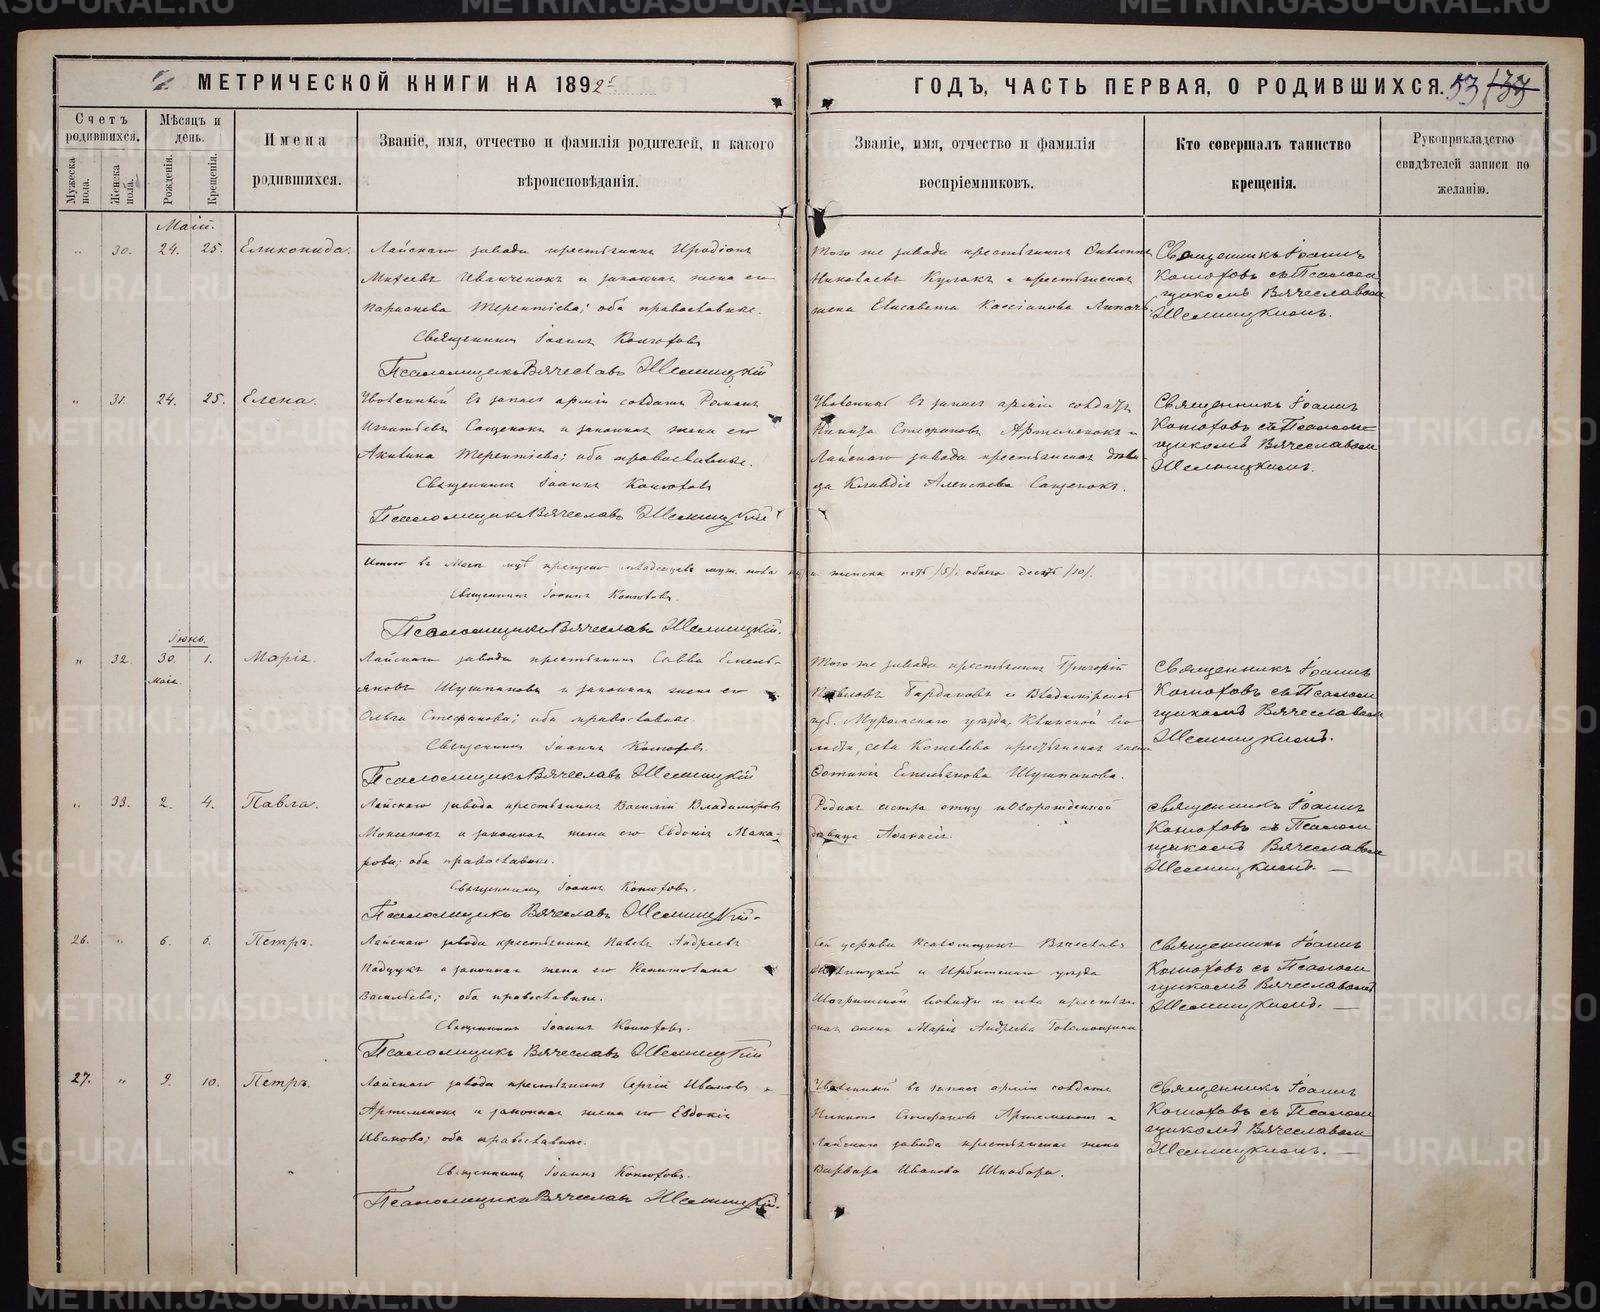 МЕТРИЧЕСКОЙ КНИГИ НА 1892
ГОДЪ, ЧАСТЬ ПЕРВАЯ, О РОДИВШИХСЯ. 53
Счетъ родившихся.
Мужеска пола.
Женска пола.
Мѣсяцъ и день.
Рожденія.
Крещенія.
Имена родившихся.
Званіе, имя, отчество и фамилія родителей, и какого вѣроисповѣданія.
Званіе, имя, отчество и фамилія воспріемниковъ.
Кто совершалъ таинство крещенія.
Рукоприкладство свидѣтелей записи по желанію.
Май.
„ 30. 24. 25. Еликонида.
Лайскаго завода крестьянинъ Иродіонъ
и законная жена его
Терентіева; оба православные.
Священникъ Іоаннъ Конюховъ
Псаломщикъ Вячеславъ
Того же завода крестьянинъ
Николаевъ Кулакъ и крестьянская
жена Елисавета Кассіанова
Священникъ Іоаннъ
Конюховъ съ Псалом
щикомъ Вячеславом
„ 31. 24. 25. Елена.
Уволенный въ запасъ арміи солдатъ Романъ
Игнатьевъ Сащенокъ и законная жена его
Акилина Терентіева; оба православные.
Священникъ Іоаннъ Конюховъ
Псаломщикъ Вячеславъ
Уволенный въ запасъ арміи солдатъ
Никита Стефановъ Артеменокъ и
Лайскаго завода крестьянская дѣви-
ца Клавдія Алексѣева Сащенокъ.
Священникъ Іоаннъ
Конюховъ съ Псалом-
щикомъ Вячеславом
Итого въ Маѣ м-цѣ крещено младенцевъ муж. пола
и женска пять /5/; обоего десять /10/.
Священникъ Іоаннъ Конюховъ.
Псаломщикъ Вячеславъ
Іюнь.
„ 32. 30. 1. Марія.
Мая.
Лайскаго завода крестьянинъ Савва Емель-
яновъ Шушпановъ и законная жена его
Ольга Стефанова; оба православные.
Священникъ Іоаннъ Конюховъ.
Псаломщикъ Вячеславъ
Того же завода крестьянинъ Григорій
Павловъ и Владимірской
губ. Муромскаго уѣзда,
лости, села крестьянская жена
Емельянова Шушпанова.
Священникъ Іоаннъ
Конюховъ съ Псалом
щикомъ Вячеславом
„ 33. 2. 4. Павла.
Лайскаго завода крестьянинъ Василій Владиміровъ
и законная жена его Евдокія Мака-
рова; оба православные.
Священникъ Іоаннъ Конюховъ.
Псаломщикъ Вячеславъ
Родная сестра отцу новорожденной
дѣвица
Священникъ Іоаннъ
Конюховъ съ Псалом
щикомъ Вячеславом
26. „ 6. 6. Петръ.
Лайскаго завода крестьянинъ Павелъ Андреевъ
и законная жена его Капитолина
Васильева; оба православные.
Священникъ Іоаннъ Конюховъ.
Псаломщикъ Вячеславъ
Сей церкви Псаломщикъ Вячеславъ
и Ирбитскаго уѣзда
волости и села крестьян-
ская жена Марія Андреева
Священникъ Іоаннъ
Конюховъ съ Псалом
щикомъ Вячеславом
27. „ 9. 10. Петръ.
Лайскаго завода крестьянинъ Сергій Ивановъ
Артеменокъ и законная жена его Евдокія
Иванова; оба православные.
Священникъ Іоаннъ Конюховъ.
Псаломщикъ Вячеславъ
Уволенный въ запасъ арміи солдатъ
Никита Стефановъ Артеменокъ и
Лайскаго завода крестьянская жена
Варвара Иванова
Священникъ Іоаннъ
Конюховъ съ Псалом
щикомъ Вячеславом
METRIKI.GASO-URAL.RU